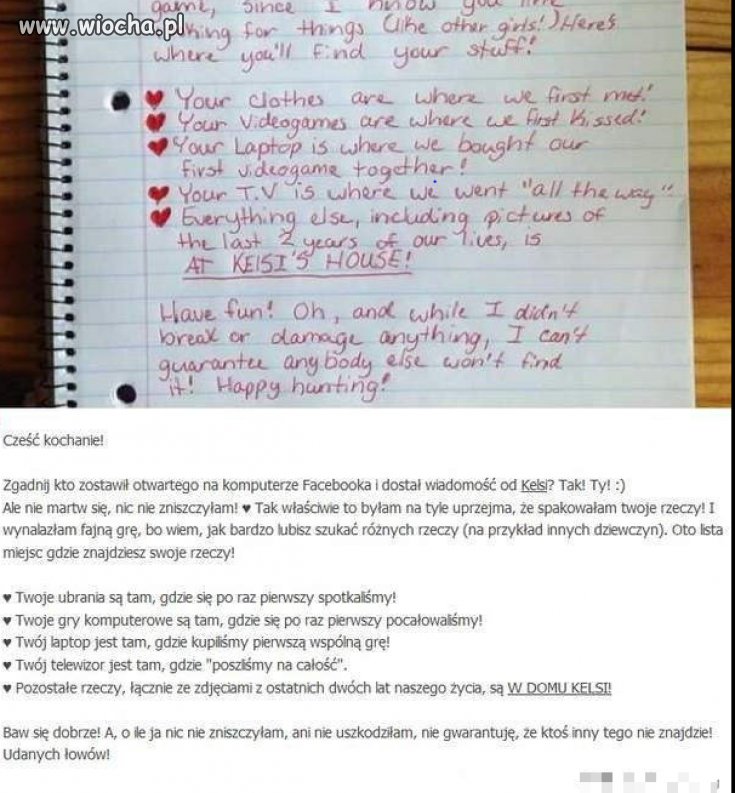 game, since I know you like
www.wiocha.pl
king for things (like other girls!) Here's
where you'll find your stuff!
♥ Your clothes are where we first met!
♥ Your videogames are where we first kissed!
♥ Your Laptop is where we bought our
first videogame together!
♥ Your T.V is where we went "all the way".
♥ Everything else, including pictures of
the last 2 years of our lives, is
AT KELSI'S HOUSE!
Have fun! Oh, and while I didn't
break or damage anything, I can't
guarantee anybody else won't find
it! Happy hunting!
Cześć kochanie!
Zgadnij kto zostawił otwartego na komputerze Facebooka i dostał wiadomość od Kelsi? Tak! Ty! :)
Ale nie martw się, nic nie zniszczyłam! ♥ Tak właściwie to byłam na tyle uprzejma, że spakowałam twoje rzeczy! I
wynalazłam fajną grę, bo wiem, jak bardzo lubisz szukać różnych rzeczy (na przykład innych dziewczyn). Oto lista
miejsc gdzie znajdziesz swoje rzeczy!
♥ Twoje ubrania są tam, gdzie się po raz pierwszy spotkaliśmy!
♥ Twoje gry komputerowe są tam, gdzie się po raz pierwszy pocałowaliśmy!
♥ Twój laptop jest tam, gdzie kupiliśmy pierwszą wspólną grę!
♥ Twój telewizor jest tam, gdzie "poszliśmy na całość".
♥ Pozostałe rzeczy, łącznie ze zdjęciami z ostatnich dwóch lat naszego życia, są W DOMU KELSI!
Baw się dobrze! A, o ile ja nic nie zniszczyłam, ani nie uszkodziłam, nie gwarantuję, że ktoś inny tego nie znajdzie!
Udanych łowów!